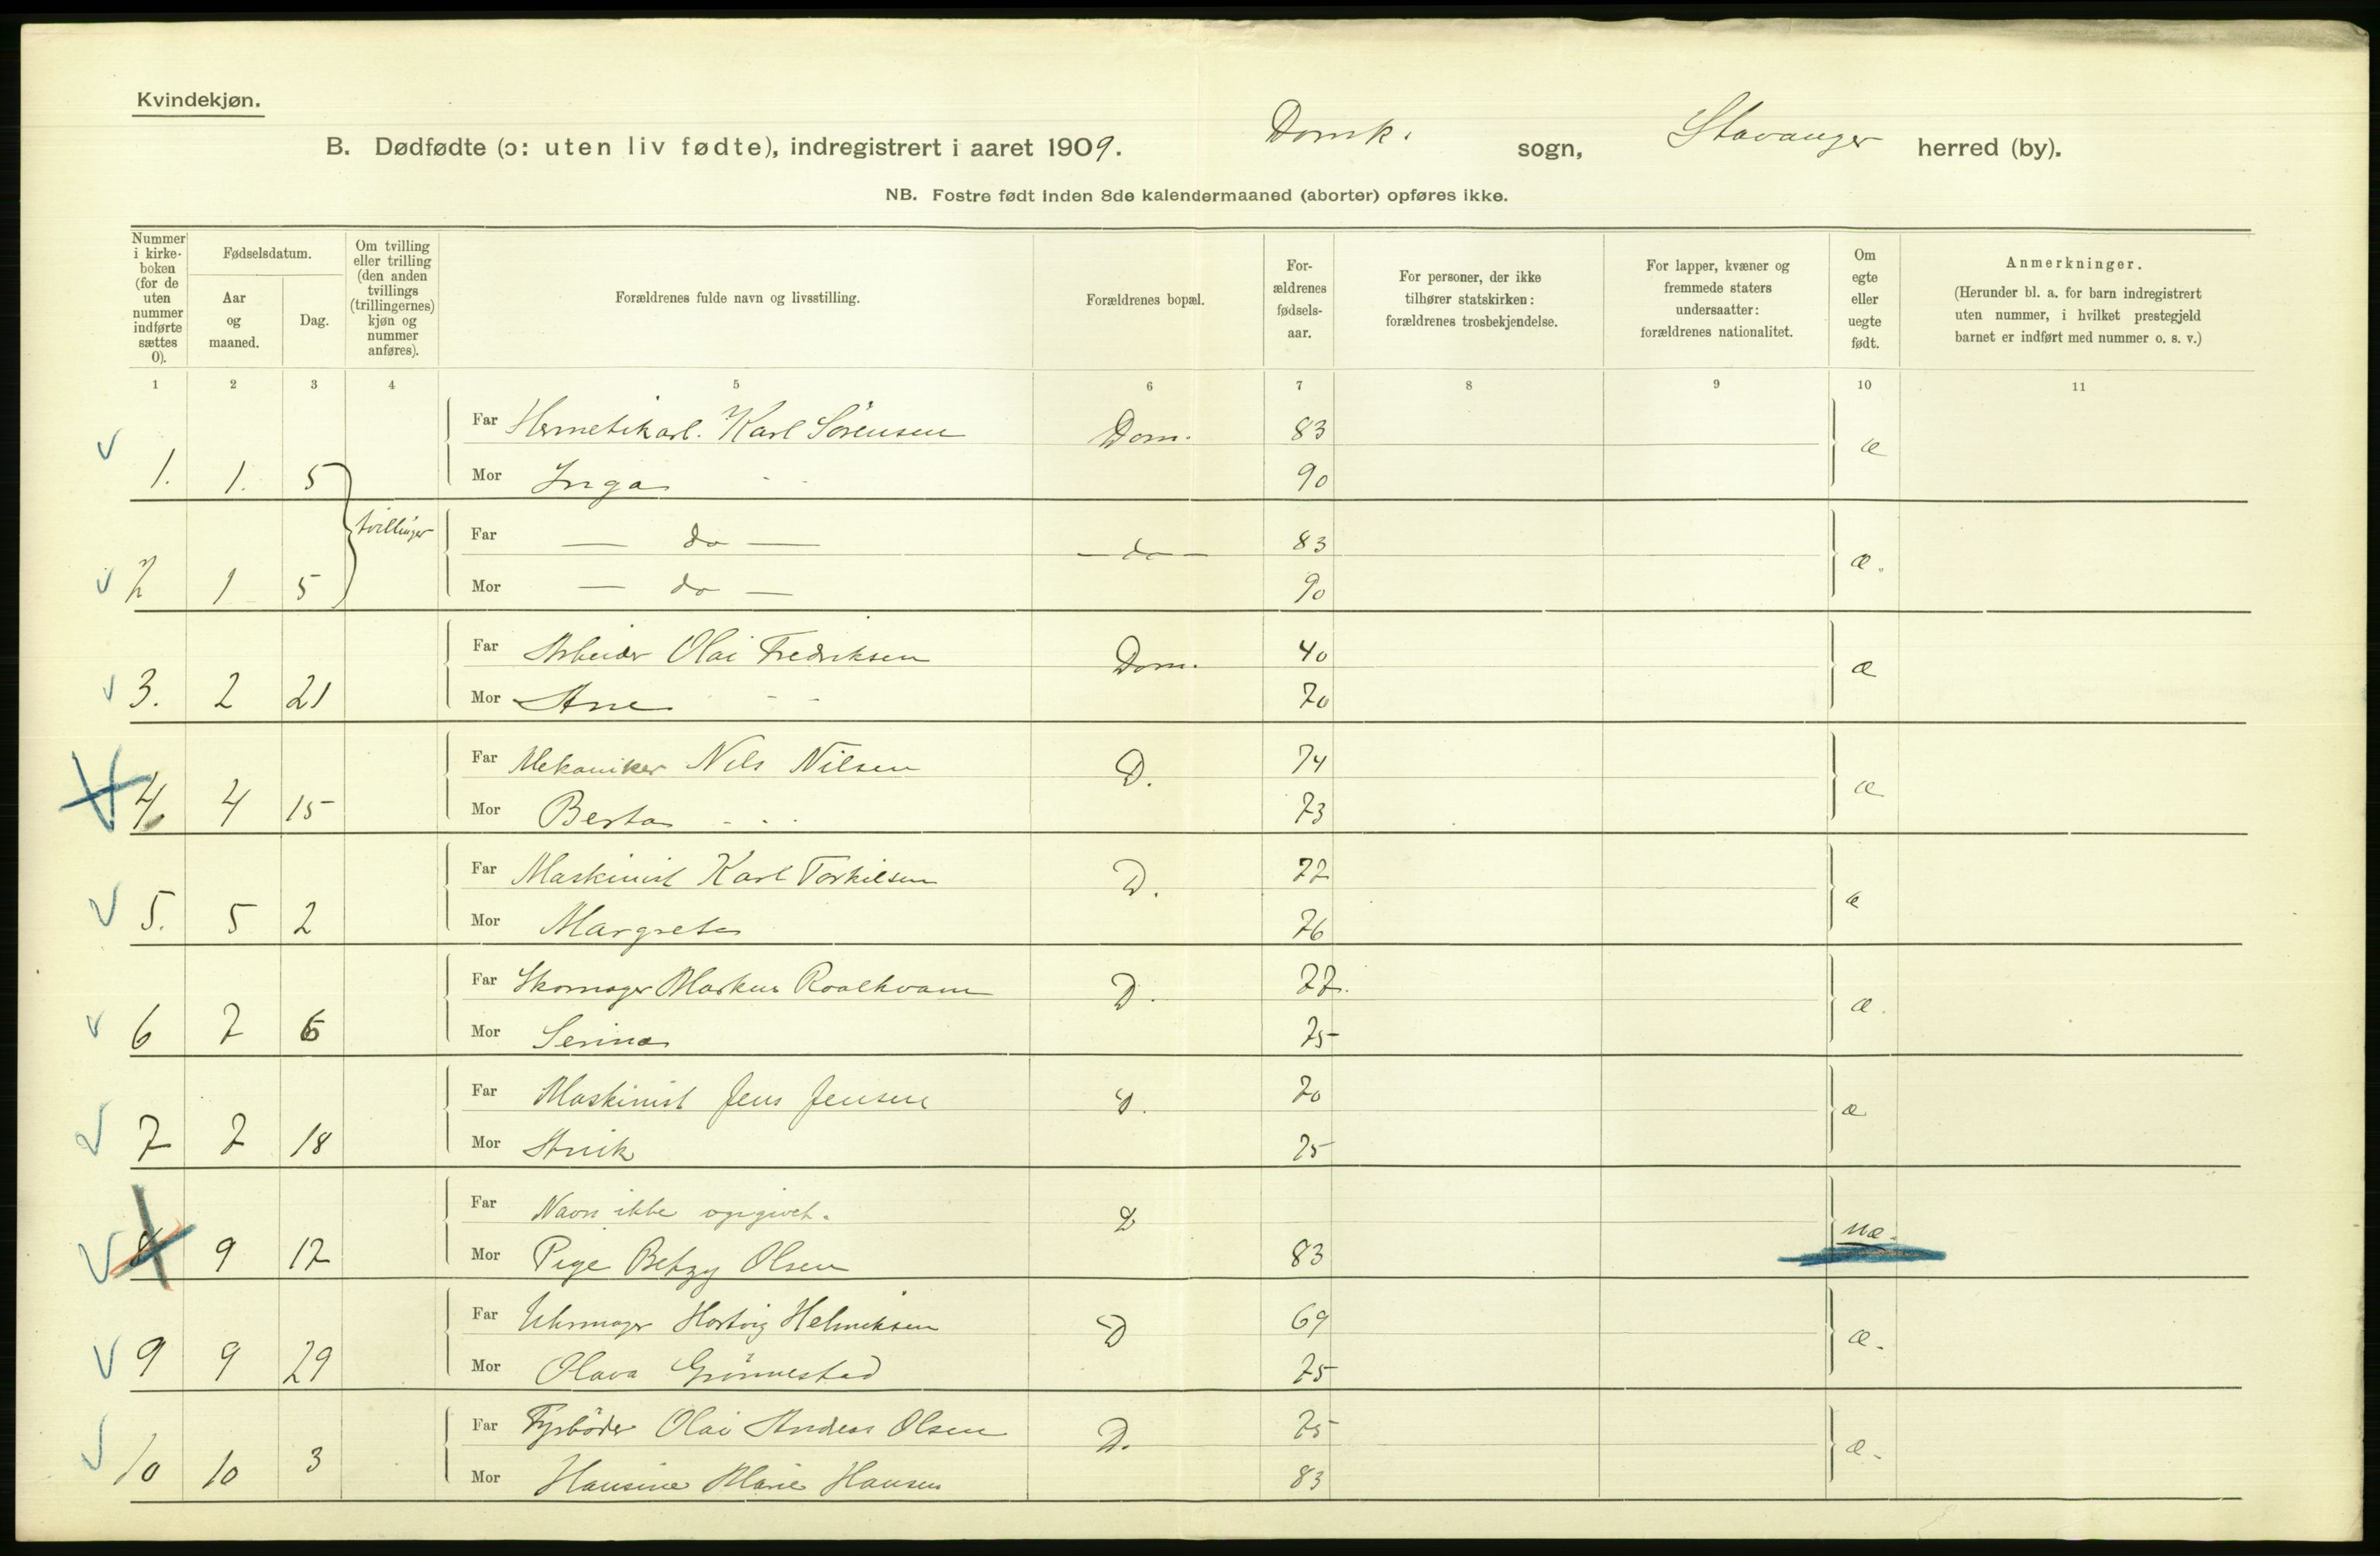 Kvindekjøn.
B. Dødfødte (ɔ: uten liv fødte), indregistrert i aaret 1909. Domk. sogn, Stavanger herred (by).
NB. Fostre født inden 8de kalendermaaned (aborter) opføres ikke.
Nummer i kirkeboken (for de uten nummer indførte sættes 0).
Fødselsdatum.
Aar og maaned.
Dag.
Om tvilling eller trilling (den anden tvillings (trillingernes) kjøn og nummer anføres).
Forældrenes fulde navn og livsstilling.
Forældrenes bopæl.
Forældrenes fødselsaar.
For personer, der ikke tilhører statskirken: forældrenes trosbekjendelse.
For lapper, kvæner og fremmede staters undersaatter: forældrenes nationalitet.
Om egte eller uegte født.
Anmerkninger.
(Herunder bl. a. for barn indregistrert uten nummer, i hvilket prestegjeld barnet er indført med nummer o. s. v.)
1 2 3 4 5 6 7 8 9 10 11
Far Hermetikarb. Karl Sörensen Dom. 83 æ
1. 1. 5 Mor Inga - - 90
tvillinger
Far — do — — do — 83 æ.
2 1 5 Mor — do — 90
Far Arbeider Olai Fredriksen Dom. 40 æ
3. 2 21 Mor Ane - - 70
Far Mekaniker Nils Nilsen D. 74 æ
4 4 15 Mor Berta - - - 73
Far Maskinist Karl Torkilsen D. 72 æ
5. 5 2 Mor Margreta 76
Far Skomager Markus Roalkvam D. 72. æ.
6 7 6 Mor Serina 75
Far Maskinist Jens Jensen D. 70 æ
7 7 18 Mor 75
Far Navn ikke opgivet. D uæ.
8 9 17 Mor Pige Betzy Olsen 83
Far Uhrmager Hartvig Helmiksen D 69 æ.
9 9 29 Mor Olava Grönnestad 75
Far Fyrböder Olai Andreas Olsen D. 75 æ.
10 10 3 Mor Hansine Marie Hansen 83